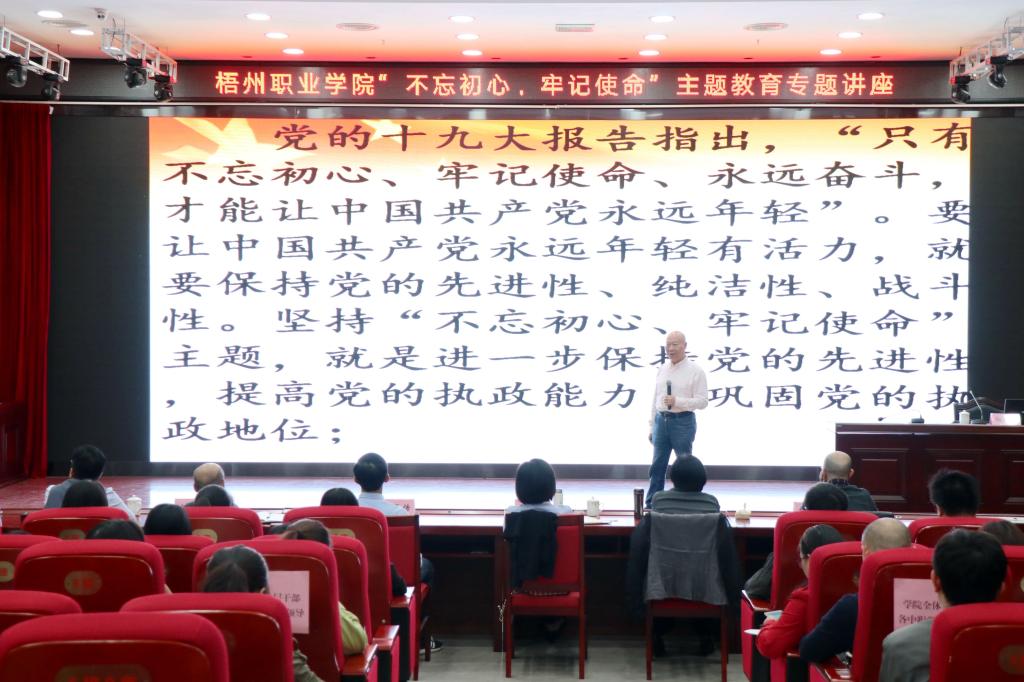 梧州职业学院“不忘初心，牢记使命”主题教育专题讲座
党的十九大报告指出，“只有
不忘初心、牢记使命、永远奋斗，
才能让中国共产党永远年轻”。要
让中国共产党永远年轻有活力，就
要保持党的先进性、纯洁性、战斗
性。坚持“不忘初心、牢记使命”
主题，就是进一步保持党的先进性
，提高党的执政能力 巩固党的执
政地位；
干部
领导
学院全体
各中